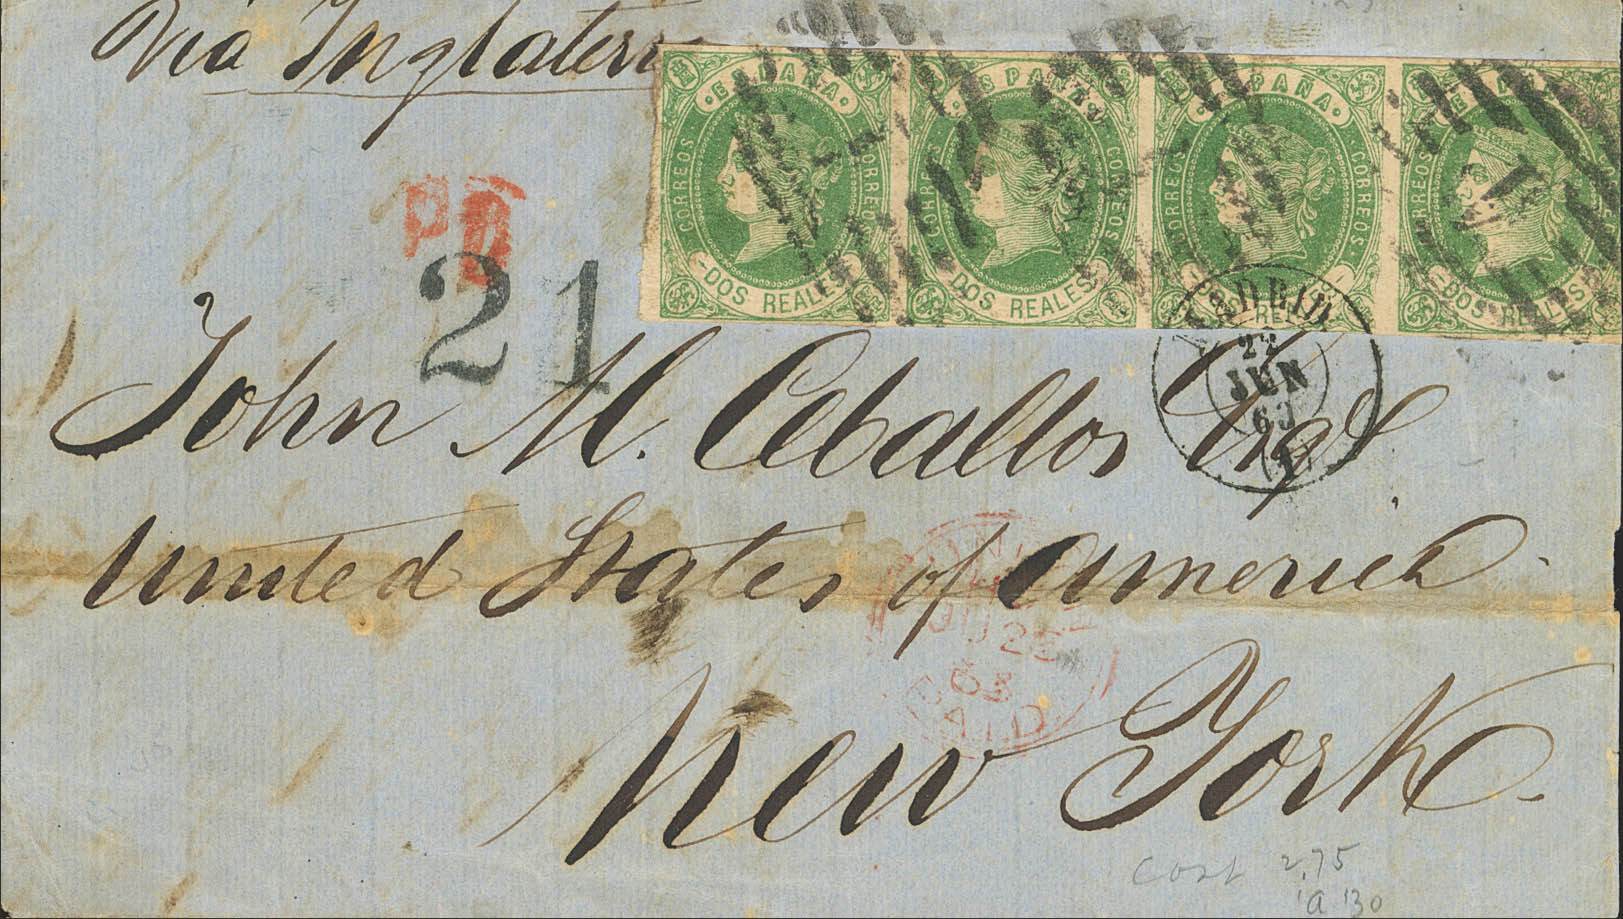 Via Inglaterr
ESPAÑA CORREOS CORREOS DOS REALES
ESPAÑA CORREOS CORREOS DOS REALES
ESPAÑA CORREOS CORREOS DOS REALES
ESPAÑA CORREOS DOS REALES
PD
21
MADRID
22
JUN
63
John M. Ceballos Esqr
United States of America
LONDON
JU 25
63
PAID
New York.
Cost 2,75